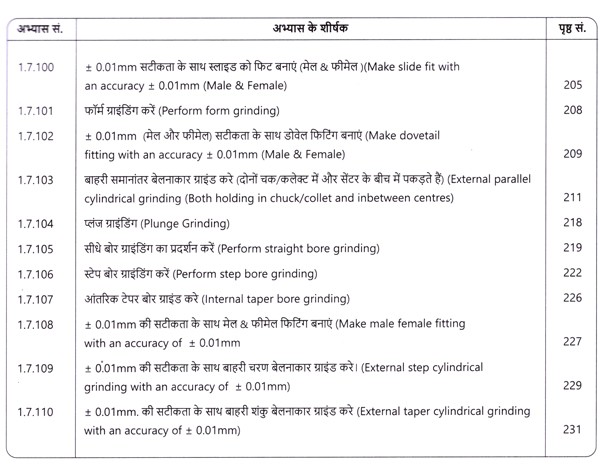 अभ्यास सं. अभ्यास के शीर्षक पृष्ठ सं.
1.7.100 ± 0.01mm सटीकता के साथ स्लाइड को फिट बनाएं (मेल & फीमेल )(Make slide fit with
an accuracy ± 0.01mm (Male & Female) 205
1.7.101 फॉर्म ग्राइंडिंग करें (Perform form grinding) 208
1.7.102 ± 0.01mm (मेल और फीमेल) सटीकता के साथ डोवेल फिटिंग बनाएं (Make dovetail
fitting with an accuracy ± 0.01mm (Male & Female) 209
1.7.103 बाहरी समानांतर बेलनाकार ग्राइंड करे (दोनों चक/कलेक्ट में और सेंटर के बीच में पकड़ते हैं) (External parallel
cylindrical grinding (Both holding in chuck/collet and inbetween centres) 211
1.7.104 प्लंज ग्राइंडिंग (Plunge Grinding) 218
1.7.105 सीधे बोर ग्राइंडिंग का प्रदर्शन करें (Perform straight bore grinding) 219
1.7.106 स्टेप बोर ग्राइंडिंग करें (Perform step bore grinding) 222
1.7.107 आंतरिक टेपर बोर ग्राइंड करे (Internal taper bore grinding) 226
1.7.108 ± 0.01mm की सटीकता के साथ मेल & फीमेल फिटिंग बनाएं (Make male female fitting
with an accuracy of ± 0.01mm 227
1.7.109 ± 0.01mm की सटीकता के साथ बाहरी चरण बेलनाकार ग्राइंड करे। (External step cylindrical
grinding with an accuracy of ± 0.01mm) 229
1.7.110 ± 0.01mm. की सटीकता के साथ बाहरी शंकु बेलनाकार ग्राइंड करे (External taper cylindrical grinding
with an accuracy of ± 0.01mm) 231